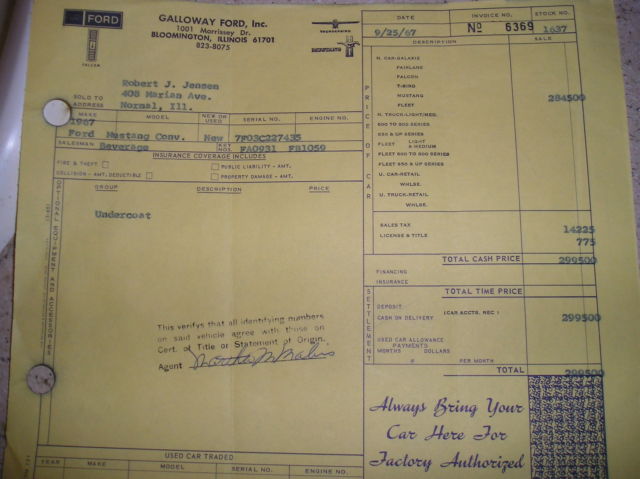 FORD
FALCON
GALLOWAY FORD, Inc.
1001 Morrissey Dr.
BLOOMINGTON, ILLINOIS 61701
823-8075
THUNDERBIRD
MUSTANG
DATE INVOICE NO. STOCK NO.
9/25/67 No 6369 1637
DESCRIPTION SALE
SOLD TO Robert J. Jensen
ADDRESS 408 Marian Ave.
Normal, Ill.
MAKE MODEL NEW OR USED SERIAL NO. ENGINE NO.
1967
Ford Mustang Conv. New 7F03C227435
SALESMAN Beverage KEY NOS. FA0931 FB1059
INSURANCE COVERAGE INCLUDES
FIRE & THEFT PUBLIC LIABILITY - AMT.
COLLISION - AMT. DEDUCTIBLE PROPERTY DAMAGE - AMT.
OPTIONAL EQUIPMENT AND ACCESSORIES
GROUP DESCRIPTION PRICE
Undercoat
This verifys that all identifying numbers
on said vehicle agree with those on
Cert. of Title or Statement of Origin.
Agent
PRICE OF CAR
N. CAR-GALAXIE
FAIRLANE
FALCON
T-BIRD
MUSTANG 284500
FLEET
N. TRUCK-LIGHT/MED.
500 TO 600 SERIES
850 & UP SERIES
FLEET LIGHT & MEDIUM
FLEET 500 TO 600 SERIES
FLEET 850 & UP SERIES
U. CAR-RETAIL
WHLSE.
U. TRUCK-RETAIL
WHLSE.
SALES TAX 14225
LICENSE & TITLE 775
TOTAL CASH PRICE 299500
FINANCING
INSURANCE
TOTAL TIME PRICE
SETTLEMENT
DEPOSIT
CASH ON DELIVERY (CAR ACCTS. REC) 299500
USED CAR ALLOWANCE
PAYMENTS
MONTHS DOLLARS
PER MONTH
TOTAL 299500
Always Bring Your
Car Here For
Factory Authorized
USED CAR TRADED
YEAR MAKE MODEL SERIAL NO. ENGINE NO.